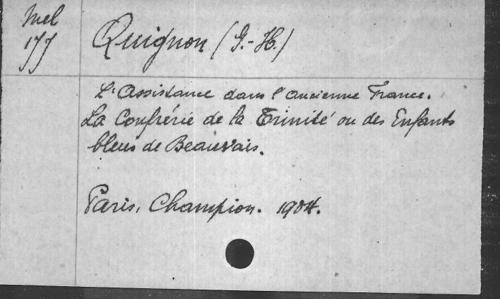 Mel
177
Quignon (G.-H.)
L'Assistance dans l'ancienne France.
La Confrérie de la Trinité ou des Enfants
bleus de Beauvais.
Paris, Champion. 1904.